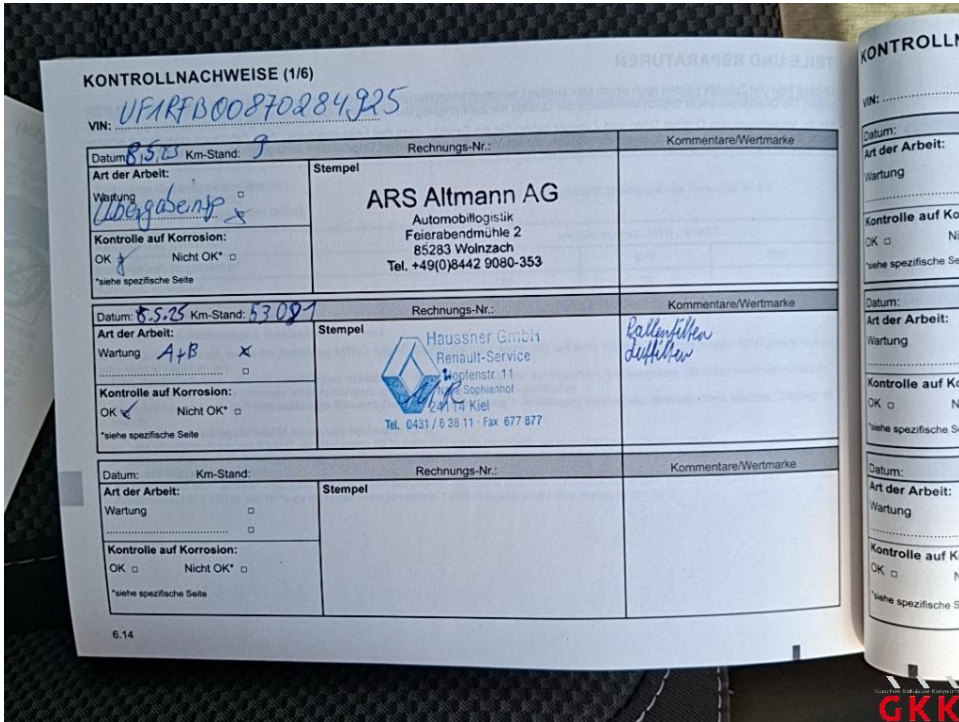 KONTROLLNACHWEISE (1/6)
VIN: VF1RFB00870284925
Datum: 8.5.23 Km-Stand: 9 Rechnungs-Nr.: Kommentare/Wertmarke
Art der Arbeit: Stempel
Wartung
Übergabeinsp
Kontrolle auf Korrosion:
OK Nicht OK*
*siehe spezifische Seite
ARS Altmann AG
Automobillogistik
Feierabendmühle 2
85283 Wolnzach
Tel. +49(0)8442 9080-353
Datum: 8.5.25 Km-Stand: 53081 Rechnungs-Nr.: Kommentare/Wertmarke
Art der Arbeit: Stempel
Wartung A+B
Kontrolle auf Korrosion:
OK Nicht OK*
*siehe spezifische Seite
Haussner GmbH
Renault-Service
Hopfenstr. 11
Nähe Sophienhof
24114 Kiel
Tel. 0431 / 6 38 11 · Fax 677 877
Pollenfilter
Luftfilter
Datum: Km-Stand: Rechnungs-Nr.: Kommentare/Wertmarke
Art der Arbeit: Stempel
Wartung
Kontrolle auf Korrosion:
OK Nicht OK*
*siehe spezifische Seite
6.14
KONTROLLN
VIN:
Datum:
Art der Arbeit:
Wartung
Kontrolle auf Ko
OK Ni
*siehe spezifische Se
Datum:
Art der Arbeit:
Wartung
Kontrolle auf Ko
OK N
*siehe spezifische Se
Datum:
Art der Arbeit:
Wartung
Kontrolle auf K
OK
*siehe spezifische S
GKK